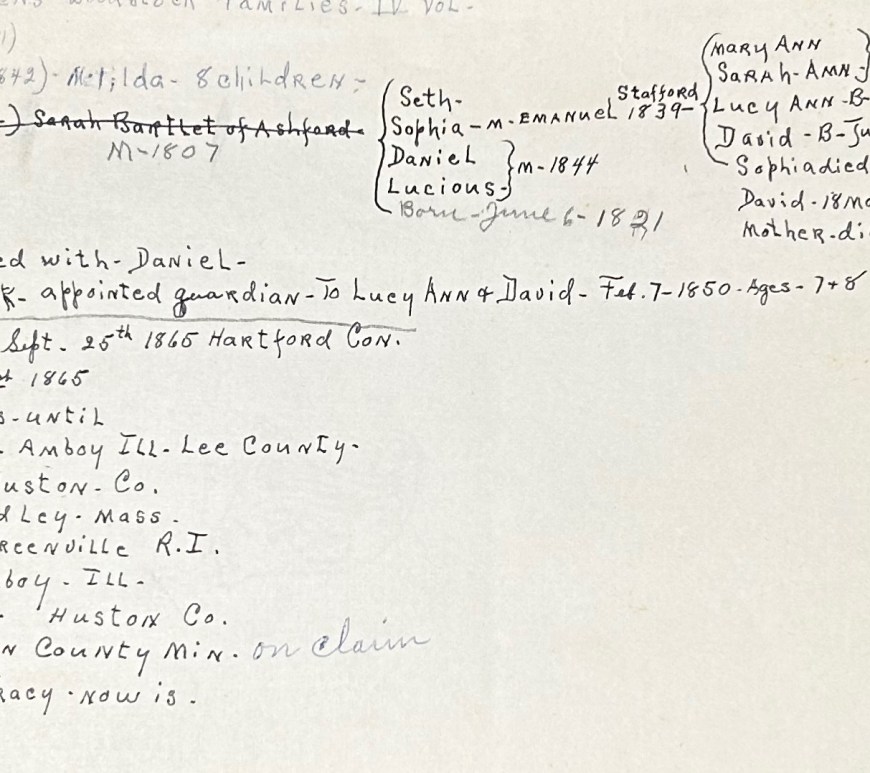 Families - IV Vol.
1)
842) - Matilda - 8 children -
-) Sarah Bartlet of Ashford -
M-1807
Seth -
Sophia - M. EMANUEL Stafford 1839 -
Daniel
Lucious - } m - 1844
Born - June 6 - 1821
MARY ANN
SARAH - ANN
Lucy ANN - B -
David - B - Ju
Sophia died
David - 18 mo
Mother - di
ed with - Daniel -
k - appointed guardian - To Lucy Ann & David - Feb. 7 - 1850 - Ages - 7 + 8
Sept. 25th 1865 Hartford Con.
1865
s - until
Amboy Ill - Lee County -
uston - Co.
dley - Mass.
reenville R.I.
boy - Ill -
Huston Co.
n County Min. on claim
racy - now is.